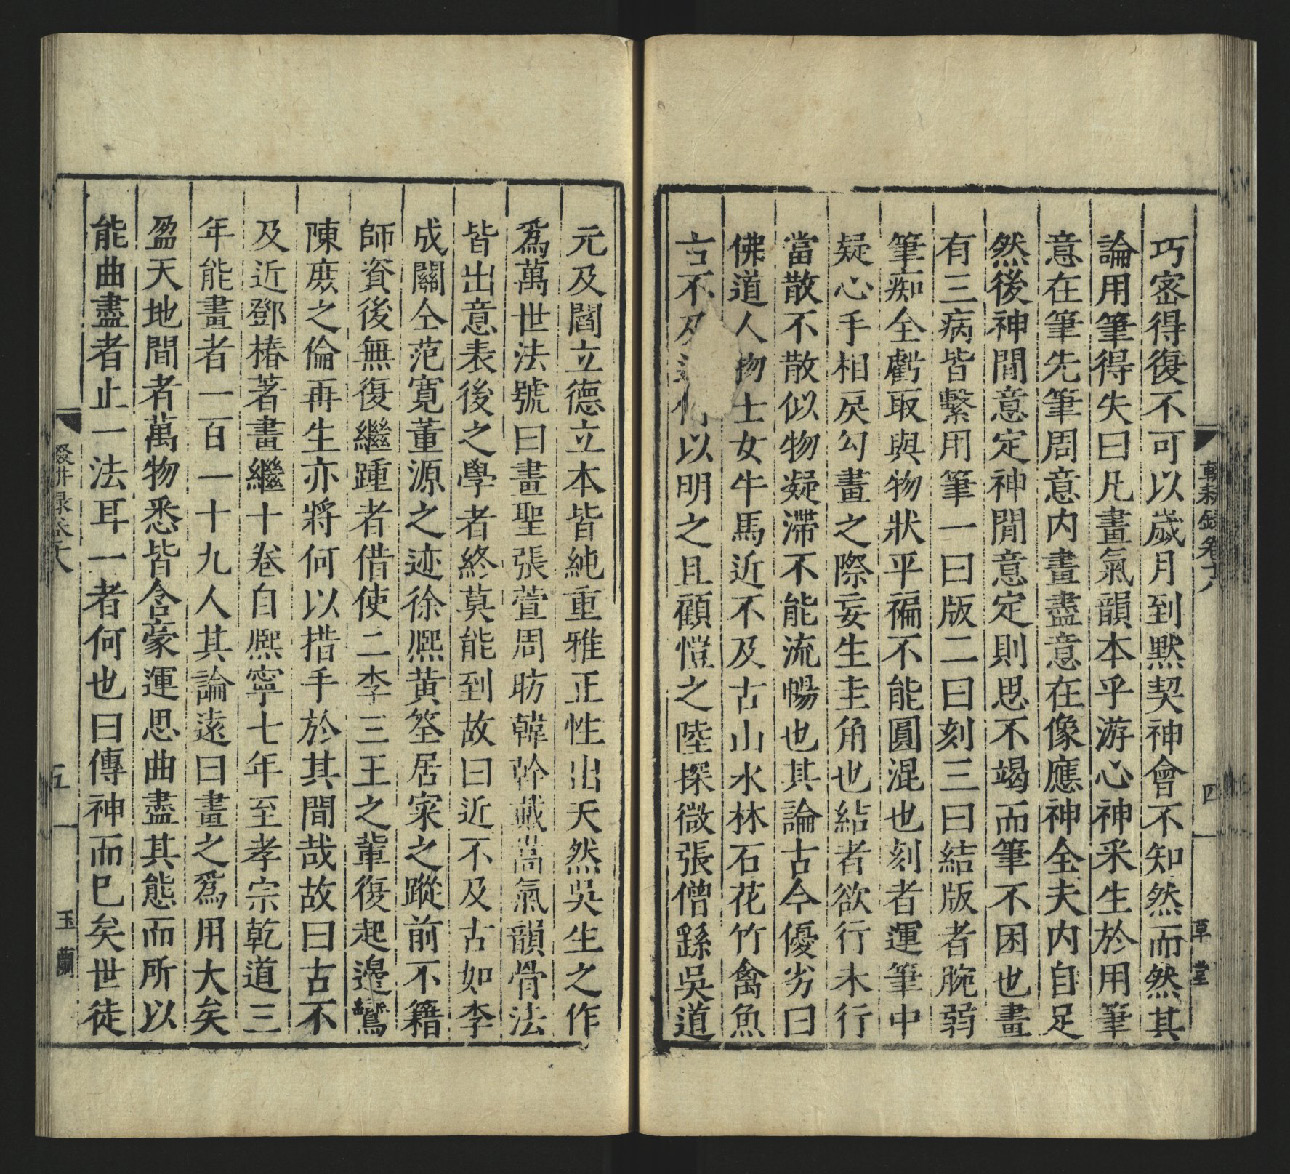 巧密得復不可以歲月到黙契神會不知然而然其
論用筆得失曰凡畫氣韻本乎游心神釆生於用筆
意在筆先筆周意内畫盡意在像應神全夫内自足
然後神閒意定神閒意定則思不竭而筆不困也畫
有三病皆繫用筆一曰版二曰刻三曰結版者腕弱
筆痴全虧取與物狀平褊不能圓混也刻者運筆中
疑心手相戾勾畫之際妄生圭角也結者欲行不行
當散不散似物凝滯不能流暢也其論古今優劣曰
佛道人物士女牛馬近不及古山水林石花竹禽魚
古不及何以明之且顧愷之陸探微張僧繇吳道
四
草堂
元及閻立德立本皆純重雅正性出天然吳生之作
爲萬世法號曰畫聖張萱周昉韓幹戴嵩氣韻骨法
皆出意表後之學者終莫能到故曰近不及古如李
成關仝范寛董源之迹徐熈黄筌居寀之蹤前不籍
師資後無復繼踵者借使二李三王之輩復起邊鸞
陳庶之倫再生亦將何以措手於其間哉故曰古不
及近鄧椿著畫繼十卷自熈寧七年至孝宗乾道三
年能畫者一百一十九人其論遠曰畫之爲用大矣
盈天地間者萬物悉皆含豪運思曲盡其態而所以
能曲盡者止一法耳一者何也曰傳神而已矣世徒
五
玉蘭